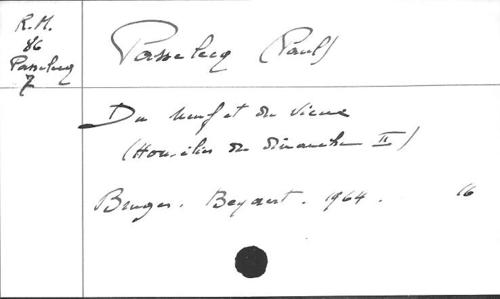 R.M.
86
Passelecq
7
Passelecq (Paul)
Du neuf et du vieux
(Homélies du dimanche II)
Bruges. Beyaert. 1964. 16